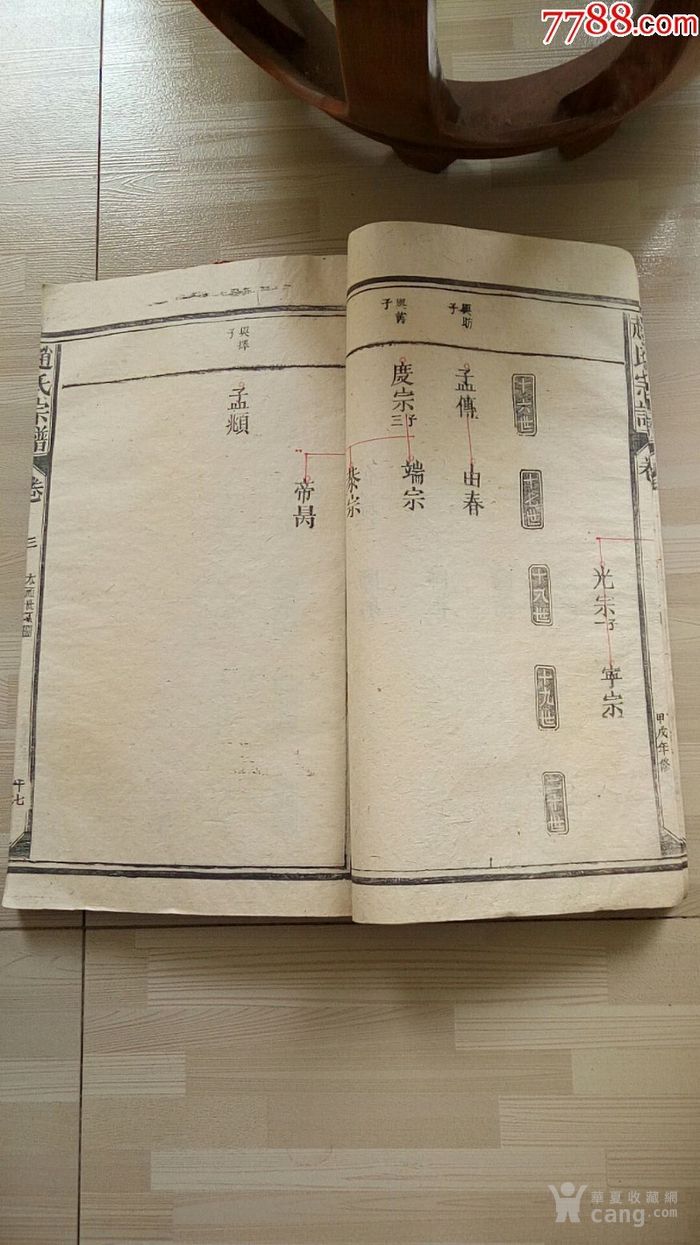 7788.com
趙氏宗譜
卷
甲戌年修
光宗子
寧宗
十六世
十七世
十八世
十九世
二十世
與勛子
孟傳
由春
與莒子
度宗三子
端宗
恭宗
帝昺
與擇子
孟頫
趙氏宗譜
卷三
華夏收藏網
cang.com